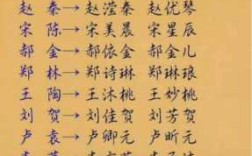 赵 秦→赵滢秦 赵优琴
宋 陈→宋美晨 宋星辰
郝 金→郝依金 郝金儿
郑 林→郑诗琳 郑琳琅
王 陶→王沐桃 王妙桃
刘 贺→刘佳贺 刘芳贺
卢 袁→卢卿元 卢昕元